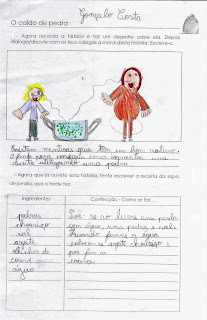 Gonçalo Costa
O caldo de pedra
- Agora recorda a história e faz um desenho sobre ela. Depois
dialoga/discute com os teus colegas a moral desta história. Escreve-a.
Existem mentiras que têm um bom
- Agora que já ouviste esta história, tenta escrever a receita da sopa
de pedra, que o frade fez.
Ingredientes
Confecção - Como se faz...
pedras
chouriço
sal
azeite
couve e
água
Põe-se ao lume uma panela
com água, uma pedra e sal.
Quando ferver a água
coloca-se azeite chouriço e
por fim as
couves.